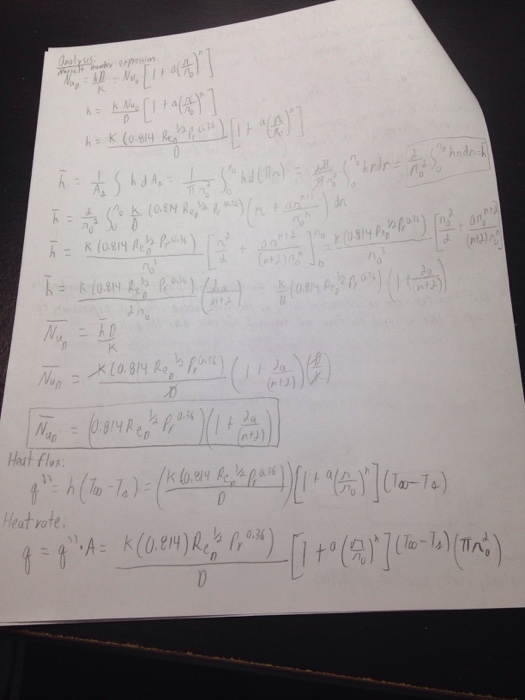 Analysis:
Nusselt number expression
Nu_D = hD/K = Nu_o [1 + a(r/r_o)^n]
h = K Nu_o/D [1 + a(r/r_o)^n]
h = K(0.814 Re_D^1/2 Pr^0.36)/D [1 + a(r/r_o)^n]
h̄ = 1/A_s ∫ h dA_s = 1/πr_o² ∫_0^r_o h d(πr²) = 2π/πr_o² ∫_0^r_o hrdr = 2/r_o² ∫_0^r_o hrdr = h̄
h̄ = 2/r_o² ∫_0^r_o K/D (0.814 Re_D^1/2 Pr^0.36)(r + ar^n+1/r_o^n) dr
h̄ = K(0.814 Re_D^1/2 Pr^0.36)/r_o² [r²/2 + ar^n+2/(n+2)r_o^n]_0^r_o = K(0.814 Re_D^1/2 Pr^0.36)/r_o² [r_o²/2 + ar_o^n+2/(n+2)r_o^n]
h̄ = K(0.814 Re_D^1/2 Pr^0.36)/2r_o (2a/n+2) K/D (0.814 Re_D^1/2 Pr^0.36)(1 + 2a/(n+2))
N̄u_D = h̄D/K
N̄u_D = K(0.814 Re_D^1/2 Pr^0.36)/D (1 + 2a/(n+2))(D/K)
N̄u_D = (0.814 Re_D^1/2 Pr^0.36)(1 + 2a/(n+2))
Heat flux:
q'' = h(T∞-T_s) = (K(0.814 Re_D^1/2 Pr^0.36)/D)[1 + a(r/r_o)^n](T∞-T_s)
Heat rate:
q = q''·A = K(0.814)Re_D^1/2 Pr^0.36)/D [1 + a(r/r_o)^n](T∞-T_s)(πr_o²)